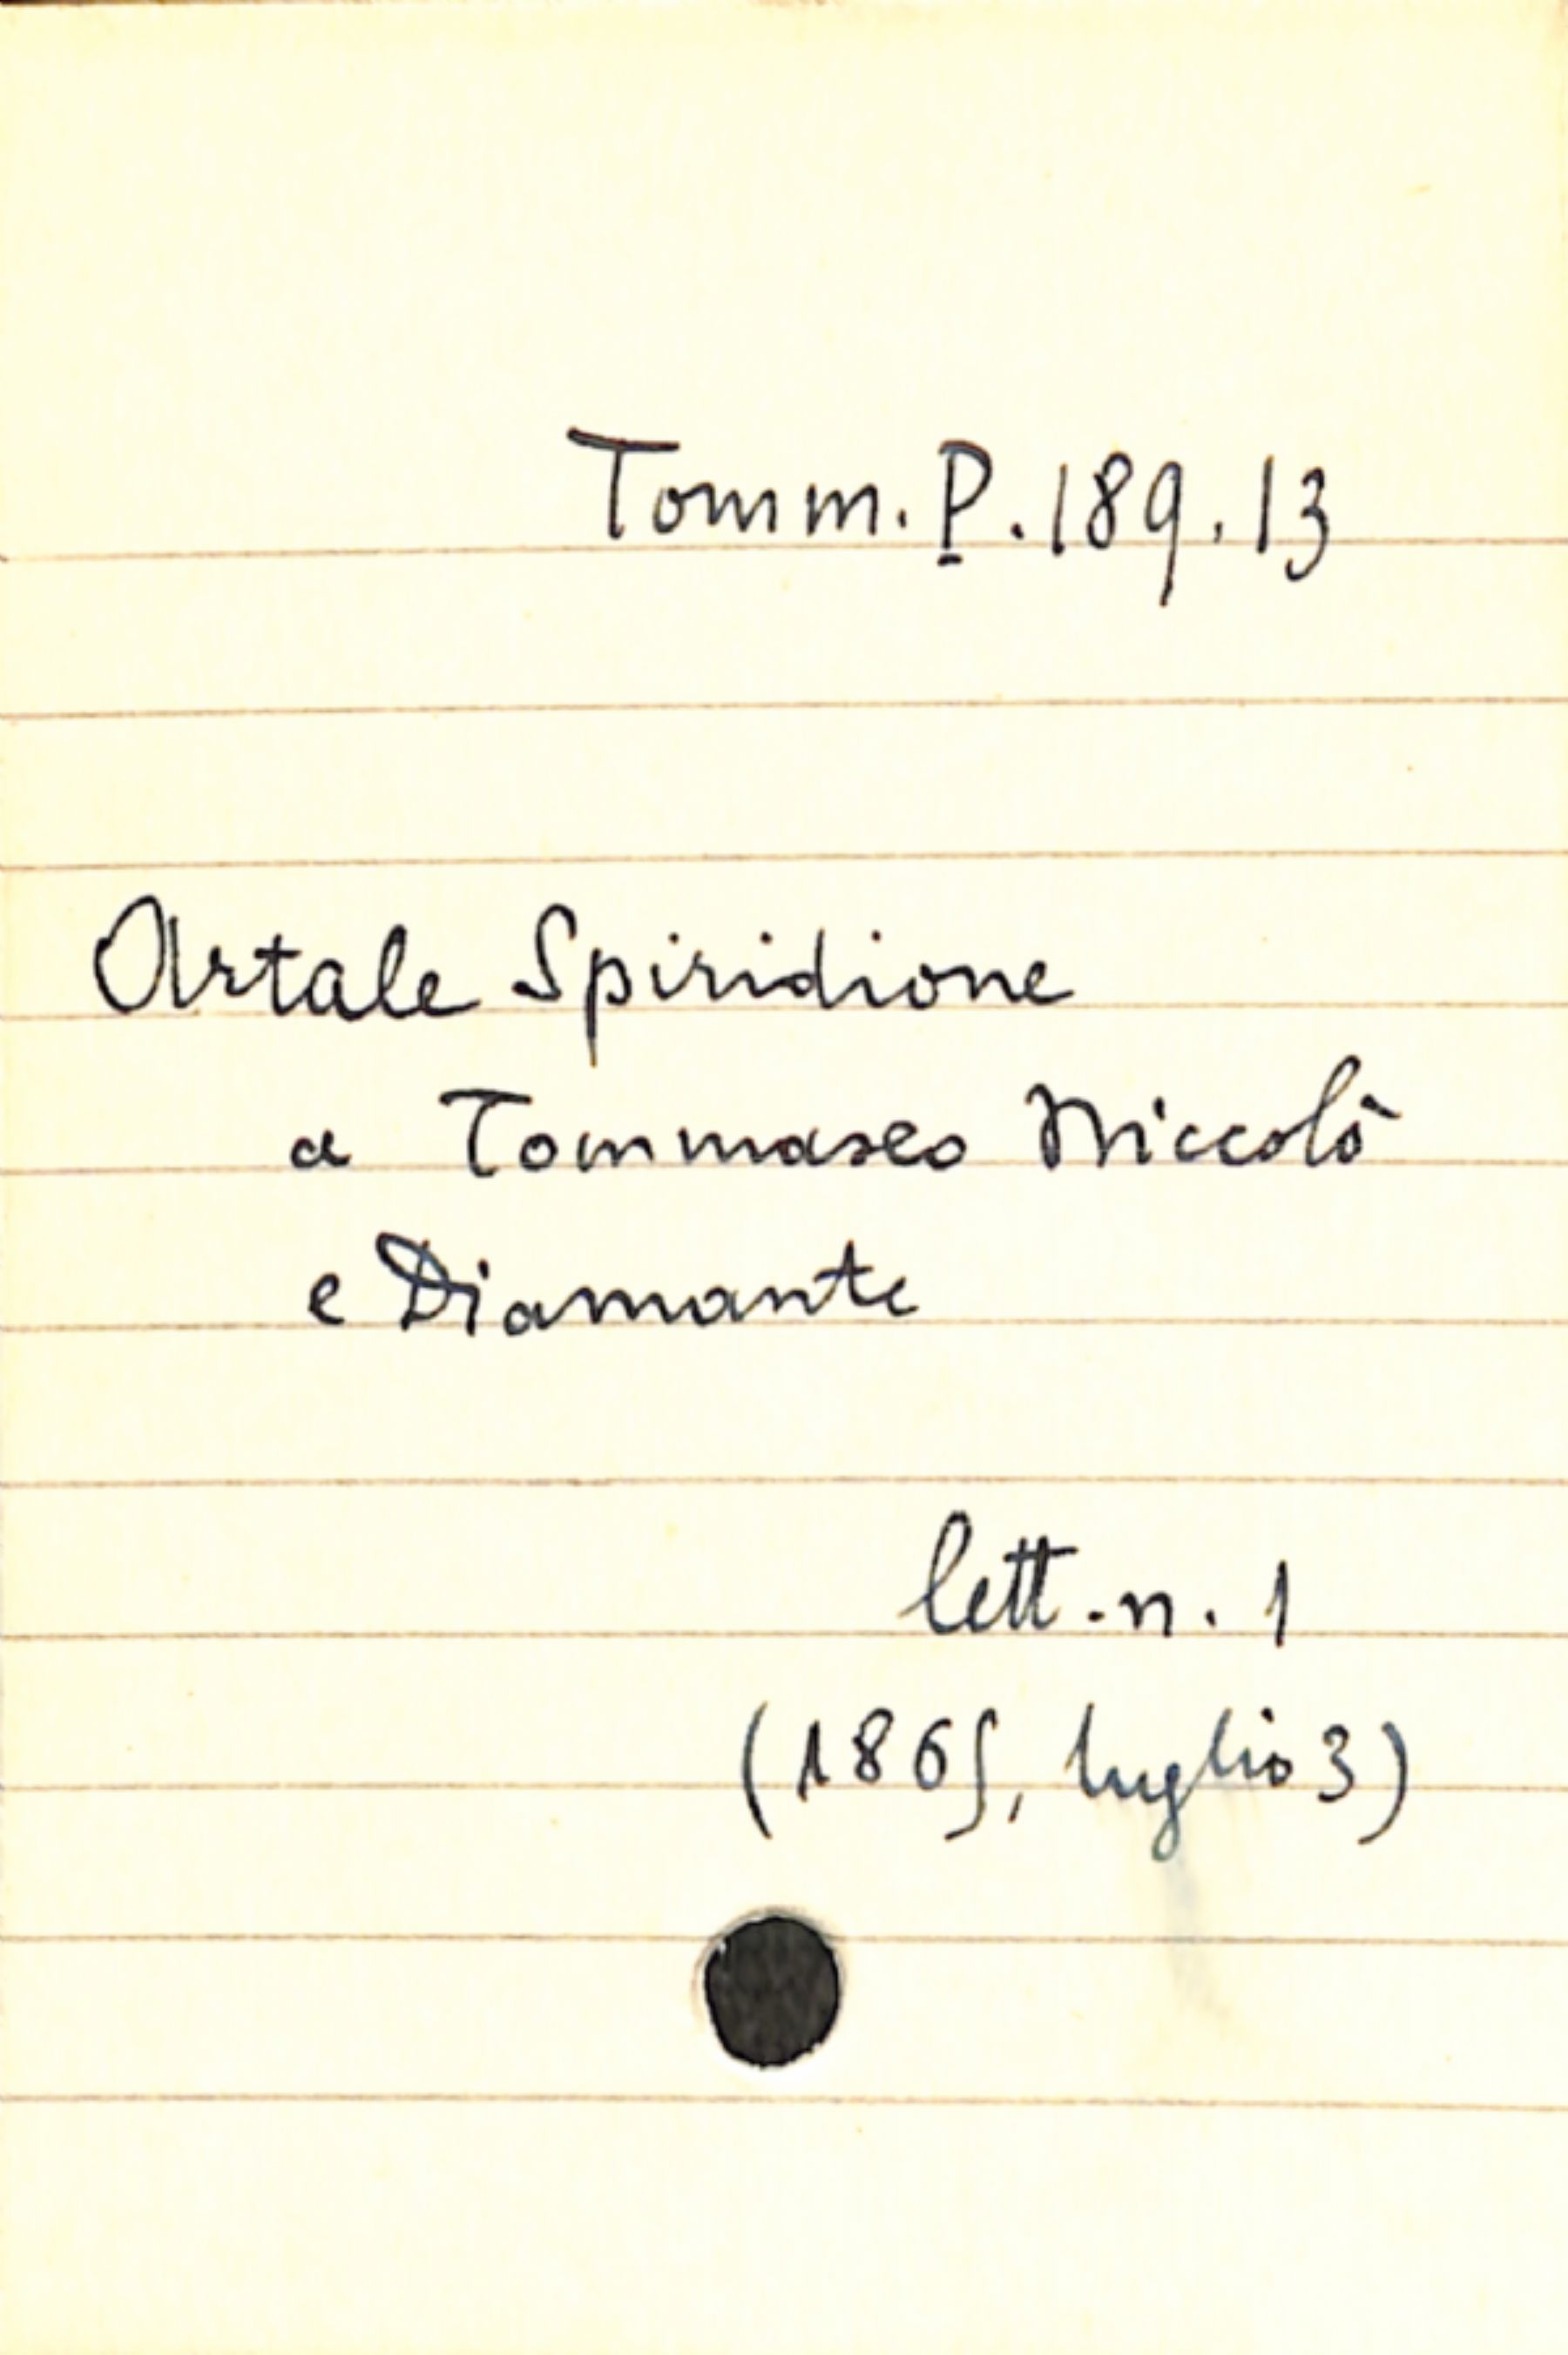 Tomm. P. 189. 13
Artale Spiridione
a Tommaseo Niccolò
e Diamante
lett. n. 1
(1865, luglio 3)